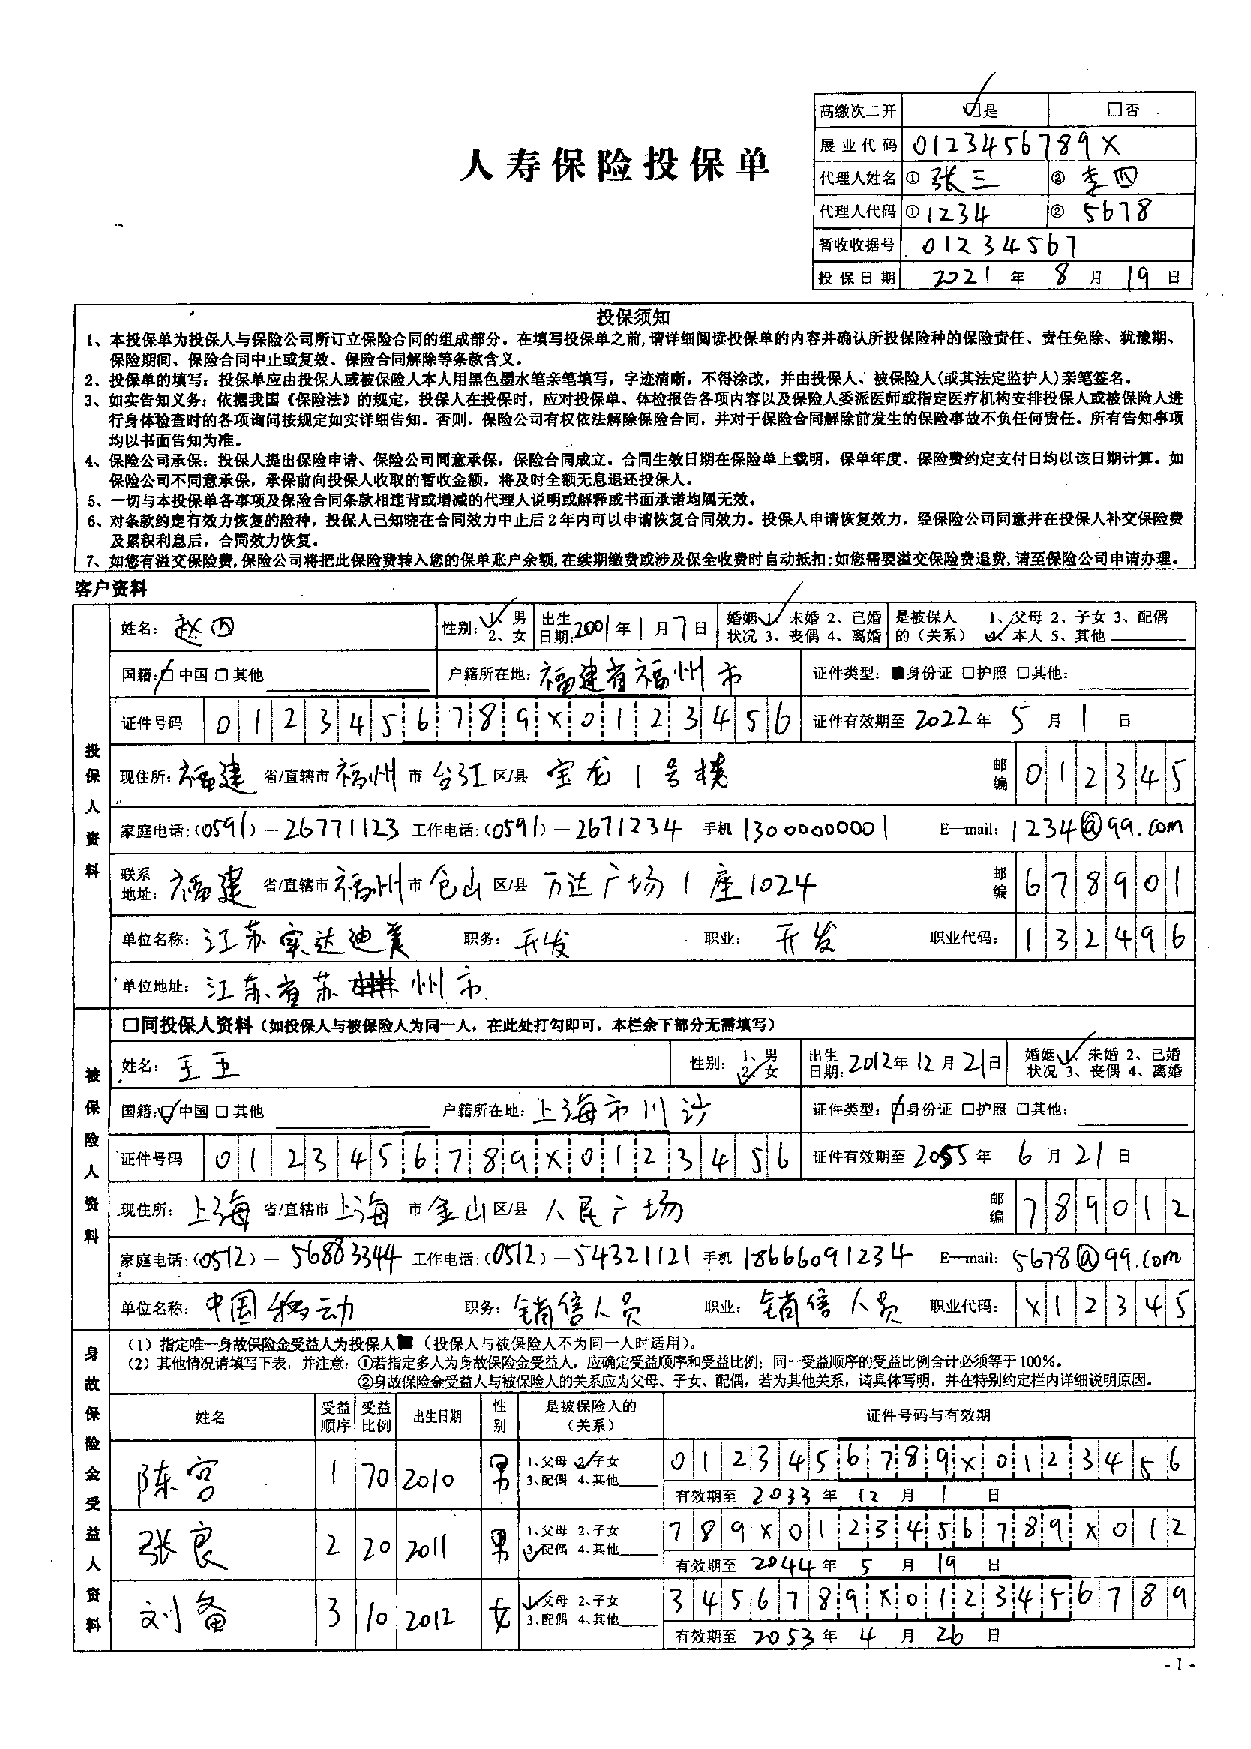 高缴次二开 ☑是 □否
人寿保险投保单
展业代码 0123456789X
代理人姓名 ① 张三 ② 李四
代理人代码 ① 1234 ② 5678
暂收收据号 01234567
投保日期 2021年8月19日
投保须知
1、本投保单为投保人与保险公司所订立保险合同的组成部分。在填写投保单之前,请详细阅读投保单的内容并确认所投保险种的保险责任、责任免除、犹豫期、
保险期间、保险合同中止或复效、保险合同解除等条款含义。
2、投保单的填写：投保单应由投保人或被保险人本人用黑色墨水笔亲笔填写，字迹清晰，不得涂改，并由投保人、被保险人(或其法定监护人)亲笔签名。
3、如实告知义务：依据我国《保险法》的规定，投保人在投保时，应对投保单、体检报告各项内容以及保险人委派医师或指定医疗机构安排投保人或被保险人进
行身体检查时的各项询问按规定如实详细告知。否则，保险公司有权依法解除保险合同，并对于保险合同解除前发生的保险事故不负任何责任。所有告知事项
均以书面告知为准。
4、保险公司承保：投保人提出保险申请、保险公司同意承保，保险合同成立。合同生效日期在保险单上载明，保单年度、保险费约定支付日均以该日期计算。如
保险公司不同意承保，承保前向投保人收取的暂收金额，将及时全额无息退还投保人。
5、一切与本投保单各事项及保险合同条款相违背或增减的代理人说明或解释或书面承诺均属无效。
6、对条款约定有效力恢复的险种，投保人已知晓在合同效力中止后2年内可以申请恢复合同效力。投保人申请恢复效力，经保险公司同意并在投保人补交保险费
及累积利息后，合同效力恢复。
7、如您有溢交保险费,保险公司将把此保险费转入您的保单账户余额,在续期缴费或涉及保全收费时自动抵扣;如您需要溢交保险费退费,请至保险公司申请办理。
客户资料
投保人资料
姓名：赵四 性别：1、男 2、女 出生日期：2001年1月7日 婚姻状况 1、未婚 2、已婚 3、丧偶 4、离婚 是被保人的（关系） 1、父母 2、子女 3、配偶 4、本人 5、其他
国籍：☑中国 □其他 户籍所在地：福建省福州市 证件类型：■身份证 □护照 □其他：
证件号码 0123456789X0123456 证件有效期至 2022年5月1日
现住所：福建 省/直辖市 福州 市 台江 区/县 宝龙1号楼 邮编 012345
家庭电话：(0591)－26771123 工作电话：(0591)－2671234 手机 13000000001 E—mail：1234@qq.com
联系地址：福建 省/直辖市 福州 市 仓山 区/县 万达广场1座1024 邮编 678901
单位名称：江苏实达迪美 职务：开发 职业：开发 职业代码：132496
单位地址：江苏省苏州市
被保险人资料
□同投保人资料（如投保人与被保险人为同一人，在此处打勾即可，本栏余下部分无需填写）
姓名：王五 性别：1、男 2、女 出生日期：2012年12月21日 婚姻状况 1、未婚 2、已婚 3、丧偶 4、离婚
国籍：☑中国 □其他 户籍所在地：上海市川沙 证件类型：☑身份证 □护照 □其他：
证件号码 0123456789X0123456 证件有效期至 2055年6月21日
现住所：上海 省/直辖市 上海 市 金山 区/县 人民广场 邮编 789012
家庭电话：(0512)－56883344 工作电话：(0512)－54321121 手机 18666091234 E—mail：5678@qq.com
单位名称：中国移动 职务：销售人员 职业：销售人员 职业代码：X12345
身故保险金受益人资料
(1) 指定唯一身故保险金受益人为投保人■（投保人与被保险人不为同一人时适用）。
(2) 其他情况请填写下表，并注意：①若指定多人为身故保险金受益人，应确定受益顺序和受益比例；同一受益顺序的受益比例合计必须等于100%。
②身故保险金受益人与被保险人的关系应为父母、子女、配偶，若为其他关系，请具体写明，并在特别约定栏内详细说明原因。
姓名 受益顺序 受益比例 出生日期 性别 是被保险人的（关系） 证件号码与有效期
陈宫 1 70 2010 男 1、父母 2、子女 3、配偶 4、其他 0123456789X0123456
有效期至 2033年12月1日
张良 2 20 2011 男 1、父母 2、子女 3、配偶 4、其他 789X0123456789X012
有效期至 2044年5月19日
刘备 3 10 2012 女 1、父母 2、子女 3、配偶 4、其他 3456789X0123456789
有效期至 2053年4月26日
- 1 -